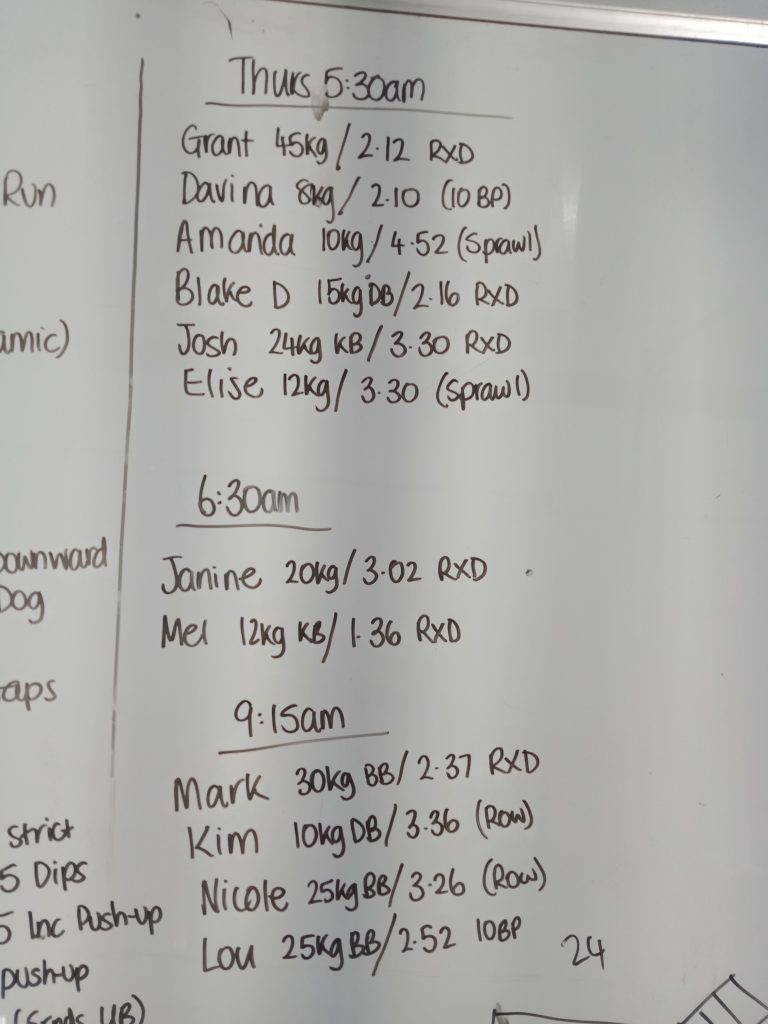 Thurs 5:30am
Grant 45kg / 2.12 RXD
Davina 8kg / 2.10 (10 BP)
Amanda 10kg / 4.52 (Sprawl)
Blake D 15kg DB / 2.16 RXD
Josh 24kg KB / 3.30 RXD
Elise 12kg / 3.30 (Sprawl)
6:30am
Janine 20kg / 3.02 RXD
Mel 12kg KB / 1.36 RXD
9:15am
Mark 30kg BB / 2.37 RXD
Kim 10kg DB / 3.36 (Row)
Nicole 25kg BB / 3.26 (Row)
Lou 25kg BB / 2.52 10BP
24
Run
amic)
Downward
Dog
aps
strict
5 Dips
5 Inc Push-up
push-up